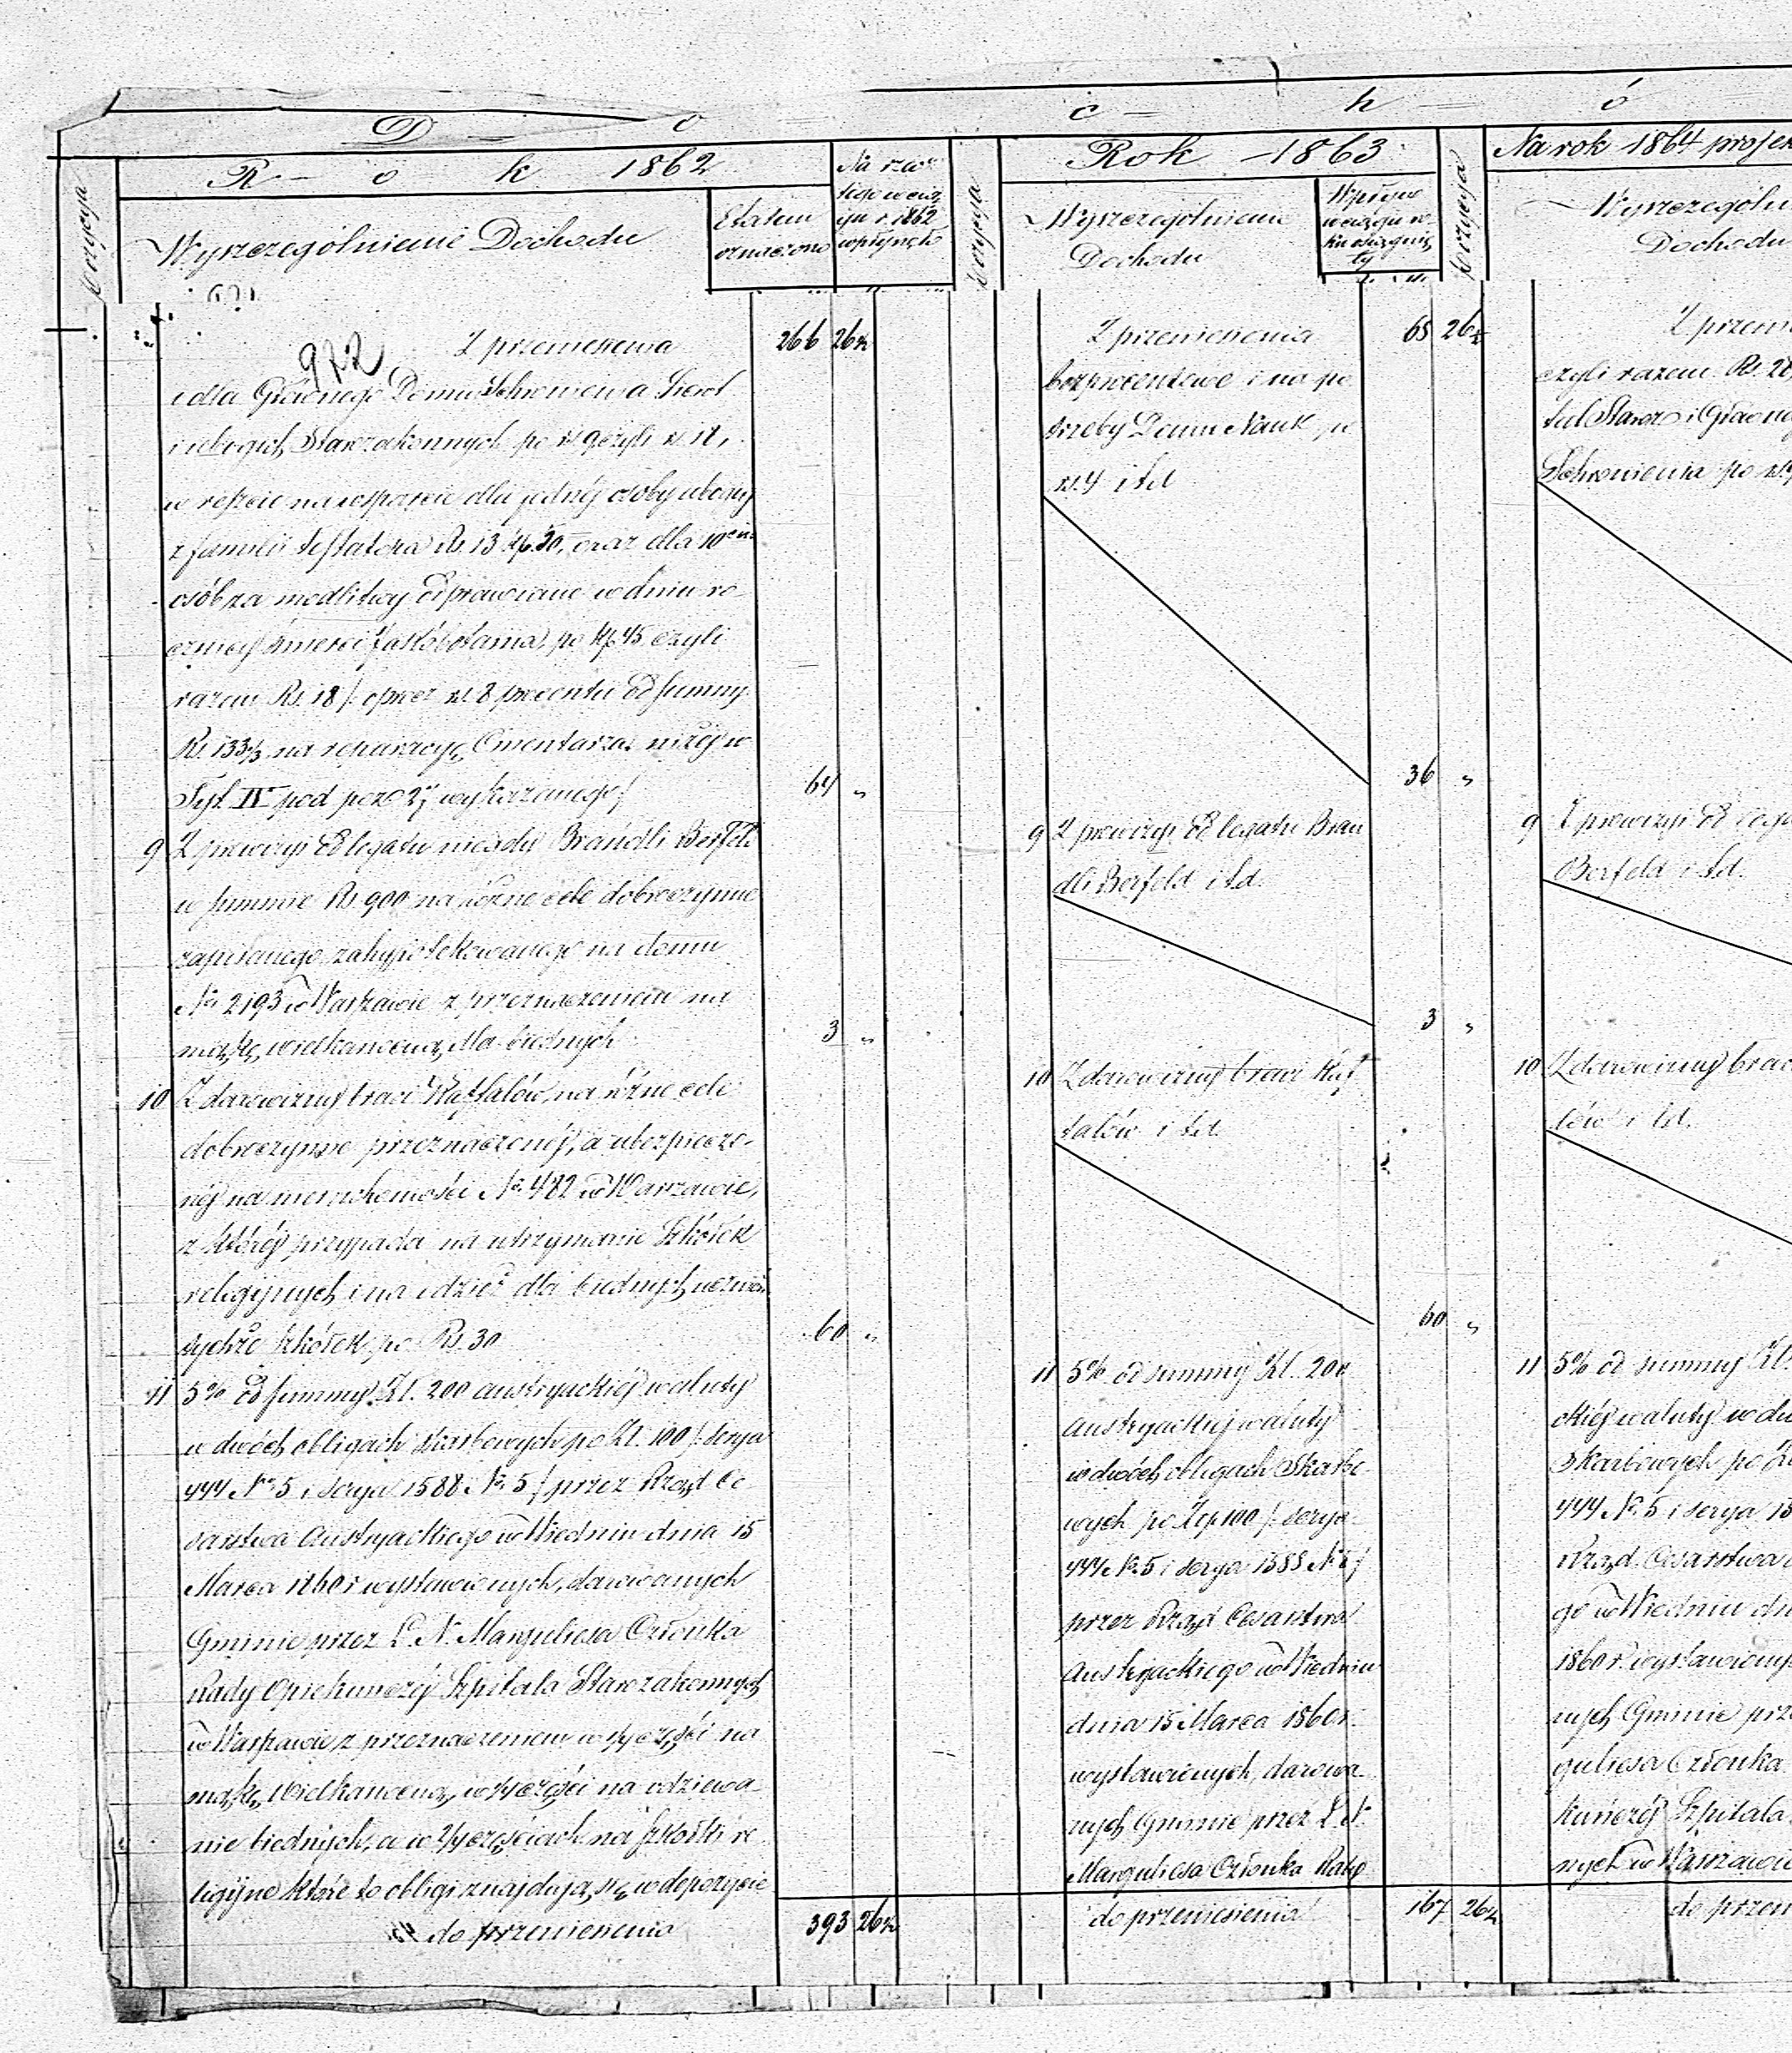 D o c h ó
R o k 1862
Rok 1863
Na rok 1864
Wyszczególnienie Dochodu
Etatem
oznaczono
Na rzecz
tego w cią
gu r. 1862
wpłynęło
Pozycya
Wyszczególnienie
Dochodu
Wpływ
w ciągu ro
ku
ty
Pozycya
Dochodu
972
Z przeniesienia 266 26½
i dla Głównego Domu Schronienia Sierot
i ubogich Starozakonnych po rs 9 czyli rs. 18,
w reszcie na wsparcie dla jednéj osoby ubogiéj
z familii testatora Rs. 13 kp. 50, oraz dla 10ciu
osób za modlitwy odprawiane w dniu ro
cznicy śmierci po kp. 45 czyli
razem Rs. 18 /: oprócz rs. 8 procentu od summy
Rs. 133⅓ na reparacyę Cmentarza niżéj w
Tyt. IV pod poz. 2 wykazanego :/ 64 „
9 Z prowizyi od legatu niegdy Brandli Berfeld
w summie Rs. 900 na różne cele dobroczynne
zapisanego zahypotekowanego na domu
No 2193 w Warszawie z przeznaczeniem na
mąkę wielkanocną dla biednych 3 „
10 Z darowizny braci na różne cele
dobroczynne przeznaczonéj, a ubezpieczo-
néj na nieruchomości No 482 w Warszawie,
z któréj przypada na utrzymanie Szkółek
religijnych i na odzież dla biednych uczniów
tychże szkółek po Rs. 30 60 „
11 5% od summy Zł. 200 austryackiéj waluty
w dwóch obligach skarbowych po Zł. 100 /: serya
444 No 5 i serya 1588 No 5 :/ przez Rząd Ce
sarstwa Austryackiego w Wiedniu dnia 15
Marca 1860 r wystawionych, darowanych
Gminie przez L. N. Marguliesa Członka
Rady Opiekuńczéj Szpitala Starozakonnych
w Warszawie z przeznaczeniem w ¼ części na
mąkę Wielkanocną, w ¼ części na odziewa-
nie biednych, a w 2/4 częściach na szkółki re
ligijne które to obligi znajdują się w depozycie
do przeniesienia 393 26½
Z przeniesienia 65 26½
bezprocentowe i na po
trzeby Domu Nauk po
rs. 4 i t.d. 36 „
9 Z prowizyi od legatu Bran
dli Berfeld i t.d. 3 „
10 Z darowizny braci
i t.d. 60 „
11 5% od summy Zł. 200
Austryackiej waluty
w dwóch obligach Skarbo-
wych po Złp 100 /: serya
444 No 5 i serya 1588 No 5 :/
przez Rząd Cesarstwa
Austryackiego w Wiedniu
dnia 15 Marca 1860 r.
wystawionych, darowa-
nych Gminie przez L. N.
Marguliesa Członka Rady
do przeniesienia 167 26½
czyli razem Rs. 28
Schronienia po rs. 9
9 Z prowizyi od lega
Berfeld i t.d.
10 Z darowizny brac
i t.d.
11 5% od summy Zł.
ckiéj waluty w dw
Skarbowych po Z
444 No 5 i serya 15
Rząd Cesarstwa
go w Wiedniu dn
1860 r. wystawiony
nych Gminie prz
guliesa Członka
kuńczéj Szpitala
nych w Warszawie
do przen